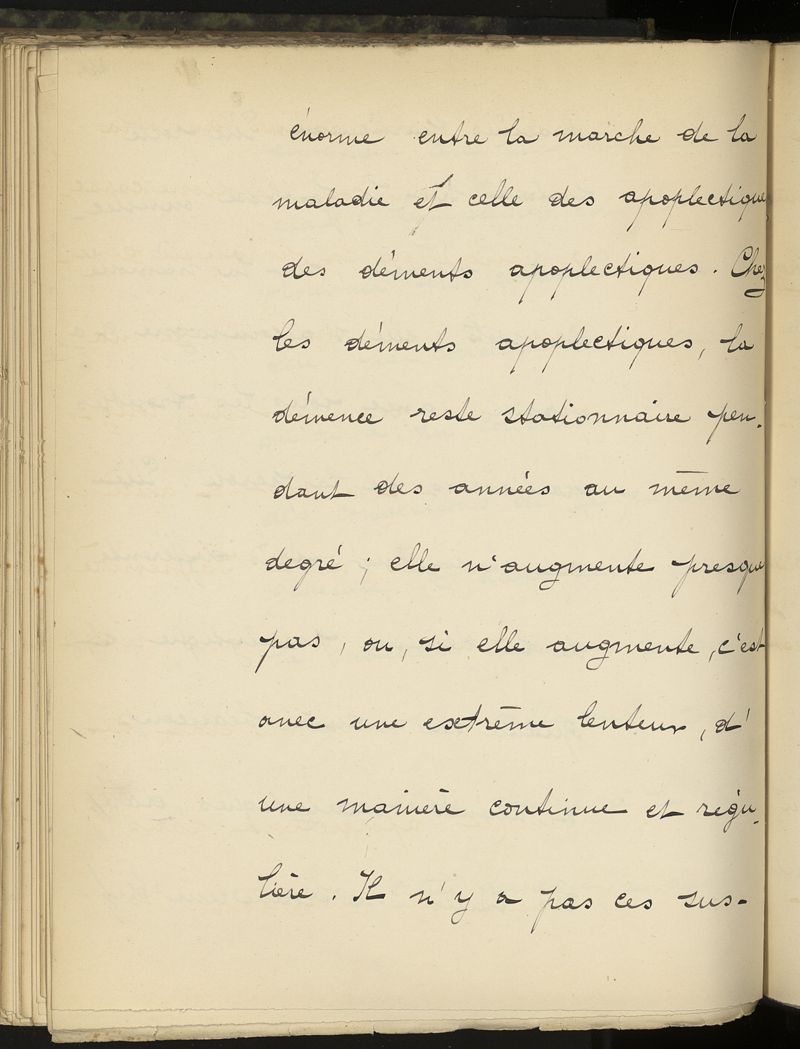 énorme entre la marche de la
maladie et celle des apoplectiques
des déments apoplectiques. Chez
les déments apoplectiques, la
démence reste stationnaire pen-
dant des années au même
degré ; elle n'augmente presque
pas, ou, si elle augmente, c'est
avec une extrême lenteur, d'
une manière continue et régu-
lière. Il n'y a pas ces sus-